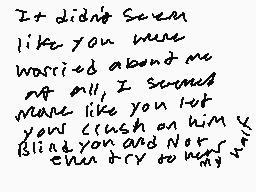 It didn't seem
like you were
worried about me
at all, I seemed
more like you let
your crush on him
Blind you and Not
even try to hear
my half